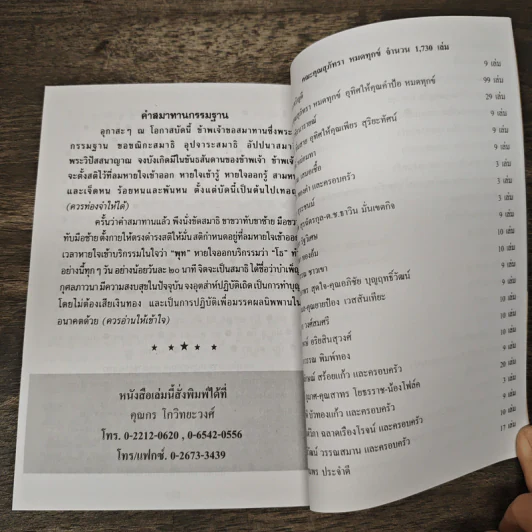 คำสมาทานกรรมฐาน
อุกาสะๆ ณ โอกาสบัดนี้ ข้าพเจ้าขอสมาทานซึ่งพระ
กรรมฐาน ขอขณิกะสมาธิ อุปจาระสมาธิ อัปปนาสมา
พระวิปัสสนาญาณ จงบังเกิดมีในขันธสันดานของข้าพเจ้า ข้าพเจ้
จะตั้งสติไว้ที่ลมหายใจเข้าออก หายใจเข้ารู้ หายใจออกรู้ สามห
และเจ็ดหน ร้อยหนและพันหน ตั้งแต่บัดนี้เป็นต้นไปเทอญ
(ควรท่องจำให้ได้)
ครั้นว่าคำสมาทานแล้ว พึงนั่งขัดสมาธิ ขาขวาทับขาซ้าย มือขว
ทับมือซ้าย ตั้งกายให้ตรงดำรงสติให้มั่น สติกำหนดอยู่ที่ลมหายใจเข้าออก
เวลาหายใจเข้าบริกรรมในใจว่า "พุท" หายใจออกบริกรรมว่า "โธ" ทำ
อย่างนี้ทุกๆ วัน อย่างน้อยวันละ ๒๐ นาที จิตจะเป็นสมาธิ ได้ชื่อว่าบำเพ็ญ
กุศลภาวนา มีความสงบสุขในปัจจุบัน จงอุตส่าห์ปฏิบัติเถิด เป็นการทำบุญ
โดยไม่ต้องเสียเงินทอง และเป็นการปฏิบัติเพื่อมรรคผลนิพพานใน
อนาคตด้วย (ควรอ่านให้เข้าใจ)
หนังสือเล่มนี้สั่งพิมพ์ได้ที่
คุณกร โกวิทยะวงศ์
โทร. 0-2212-0620 , 0-6542-0556
โทร/แฟกซ์. 0-2673-3439
คณะคุณสุภัทรา หมดทุกข์ จำนวน 1,730 เล่ม
9 เล่ม
หมดทุกข์ อุทิศให้คุณคำป้อ หมดทุกข์ 99 เล่ม
29 เล่ม
อุทิศให้คุณเพียร สุริยะทัศน์ 9 เล่ม
9 เล่ม
เสนอเชื้อ 3 เล่ม
และครอบครัว 3 เล่ม
3 เล่ม
ด.ช.ธาวิน มั่นเขตกิจ 9 เล่ม
10 เล่ม
10 เล่ม
ชาวเขา 9 เล่ม
สุดใจ-คุณอภิชัย บุญฤทธิ์วัฒน์ 9 เล่ม
เวสสันเทียะ 10 เล่ม
10 เล่ม
อริยสินสุวงศ์ 9 เล่ม
พิมพ์ทอง 9 เล่ม
สร้อยแก้ว และครอบครัว 20 เล่ม
โยธราราช-น้องโฟล์ค 3 เล่ม
บัวทองแก้ว และครอบครัว 9 เล่ม
ฉลาดเรืองโรจน์ และครอบครัว 10 เล่ม
วรรณสมาน และครอบครัว 17 เล่ม
ประจำดี